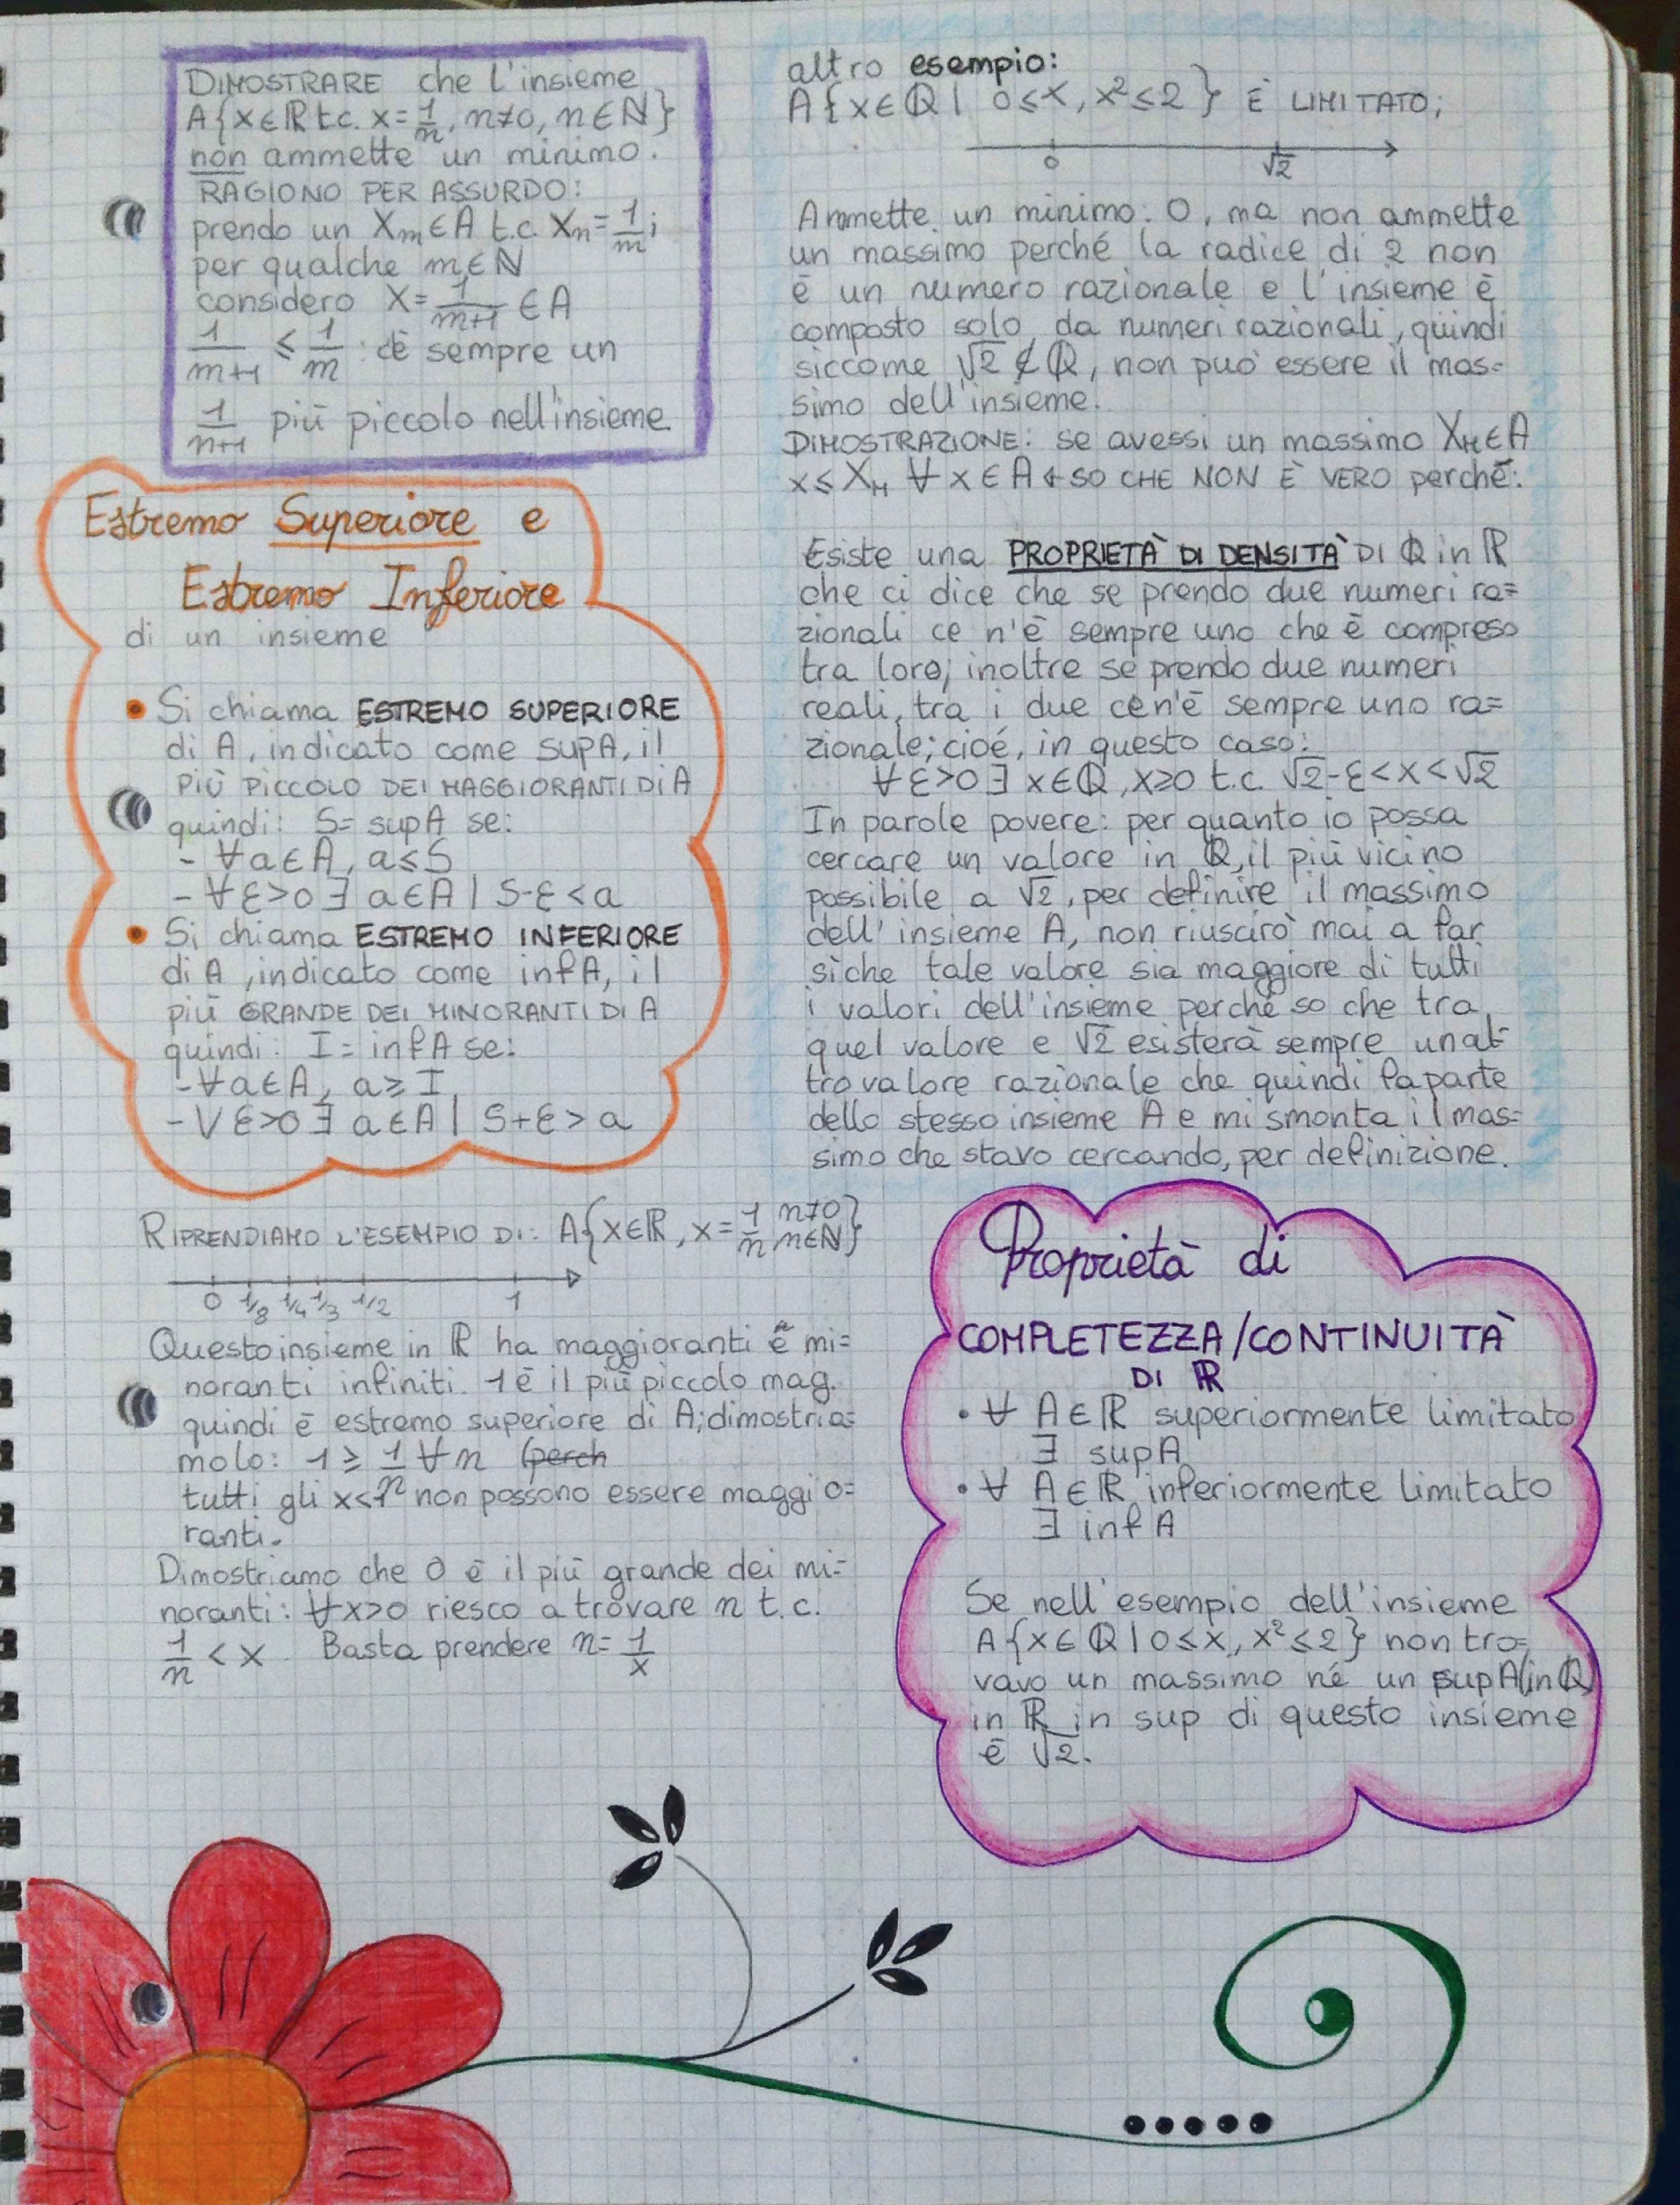 DIMOSTRARE che l'insieme
A{x∈ℝ t.c. x=1/n, n≠0, n∈ℕ}
non ammette un minimo.
RAGIONO PER ASSURDO:
prendo un Xm∈A t.c. Xm=1/m;
per qualche m∈ℕ
considero X=1/m+1 ∈A
1/m+1 ⩽ 1/m : c'è sempre un
1/n+1 più piccolo nell'insieme.
Estremo Superiore e
Estremo Inferiore
di un insieme
• Si chiama ESTREMO SUPERIORE
di A, indicato come supA, il
PIÙ PICCOLO DEI MAGGIORANTI DI A
quindi: S= supA se:
- ∀a∈A, a⩽S
- ∀ε>0 ∃ a∈A | S-ε<a
• Si chiama ESTREMO INFERIORE
di A, indicato come infA, il
più GRANDE DEI MINORANTI DI A
quindi: I= infA se:
- ∀a∈A, a⩾I
- ∀ε>0 ∃ a∈A | S+ε>a
RIPRENDIAMO L'ESEMPIO DI: A{x∈ℝ, x=1/n, n≠0 n∈ℕ}
0 1/8 1/4 1/3 1/2 1
Questo insieme in ℝ ha maggioranti e mi=
noranti infiniti. 1 è il più piccolo mag.
quindi è estremo superiore di A; dimostria=
molo: 1⩾1/n ∀n (perch
tutti gli x<1 non possono essere maggio=
ranti.
Dimostriamo che 0 è il più grande dei mi=
noranti: ∀x>0 riesco a trovare n t.c.
1/n < x Basta prendere n= 1/x
altro esempio:
A{x∈ℚ | 0⩽x, x²⩽2} È LIMITATO;
0 √2
Ammette un minimo: 0, ma non ammette
un massimo perché la radice di 2 non
è un numero razionale e l'insieme è
composto solo da numeri razionali, quindi
siccome √2∉ℚ, non può essere il mas=
simo dell'insieme.
DIMOSTRAZIONE: se avessi un massimo XM∈A
x⩽XM ∀x∈A ← SO CHE NON È VERO perché:
Esiste una PROPRIETÀ DI DENSITÀ DI ℚ in ℝ
che ci dice che se prendo due numeri ra=
zionali ce n'è sempre uno che è compreso
tra loro; inoltre se prendo due numeri
reali, tra i due ce n'è sempre uno ra=
zionale; cioé, in questo caso:
∀ε>0 ∃ x∈ℚ, x⩾0 t.c. √2-ε<x<√2
In parole povere: per quanto io possa
cercare un valore in ℚ, il più vicino
possibile a √2, per definire il massimo
dell'insieme A, non riuscirò mai a far
sì che tale valore sia maggiore di tutti
i valori dell'insieme perché so che tra
quel valore e √2 esisterà sempre un al-
tro valore razionale che quindi fa parte
dello stesso insieme A e mi smonta il mas=
simo che stavo cercando, per definizione.
Proprietà di
COMPLETEZZA/CONTINUITÀ
DI ℝ
• ∀ A∈ℝ superiormente limitato
∃ supA
• ∀ A∈ℝ inferiormente limitato
∃ infA
Se nell'esempio dell'insieme
A{x∈ℚ | 0⩽x, x²⩽2} non tro=
vavo un massimo né un supA(in ℚ)
in ℝ in sup di questo insieme
è √2.